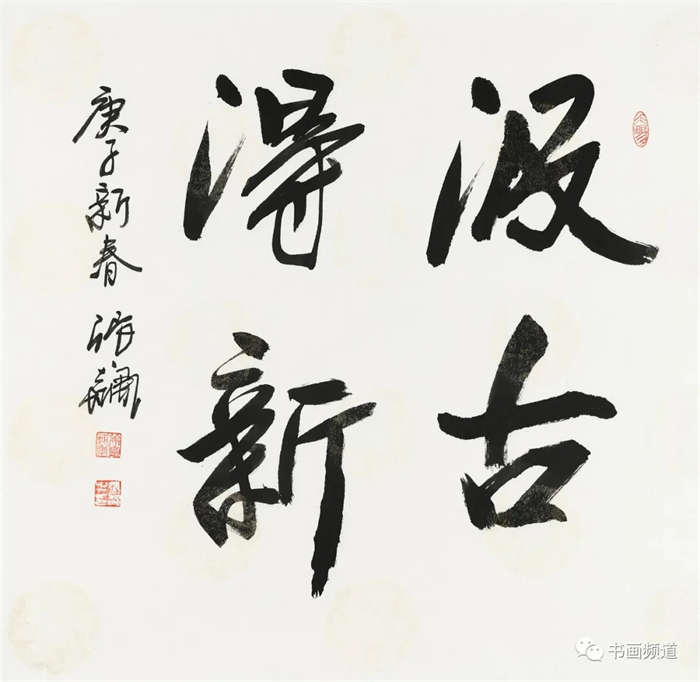 汲古
得新
庚子新春 张
书画频道